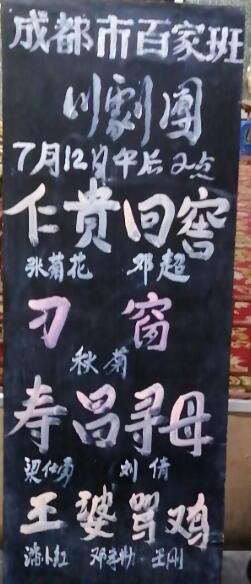 成都市百家班
川剧團
7月12日午后2点
仁贵回窑
张菊花 邓超
刁窗
秋菊
寿昌寻母
梁仕勇 刘倩
王婆骂鸡
潘小红 王刚